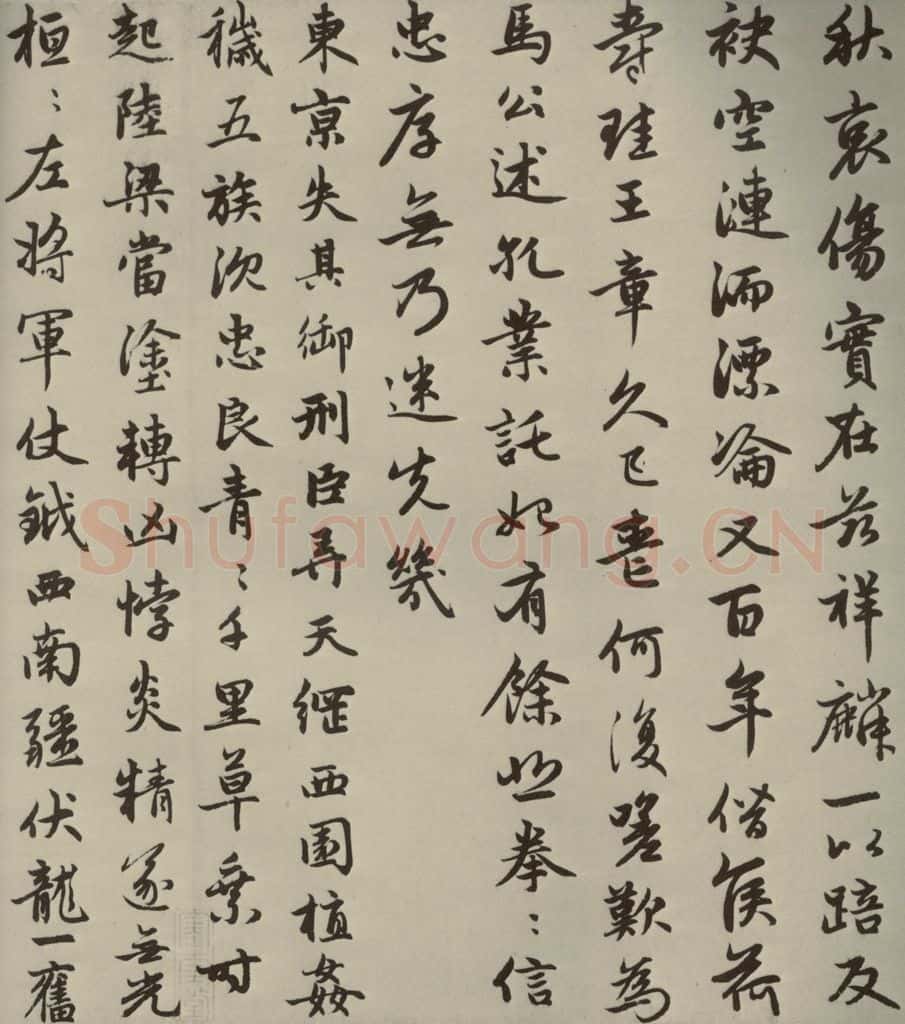 秋哀傷實在茲祥麟一以踣反
袂空漣洏漂淪又百年僭侯荷
爵珪王章久已喪何復嗟歎為
馬公述孔業託始有餘悲拳〻信
忠厚無乃迷先幾
東京失其御刑臣弄天綱西園植姦
穢五族沉忠良青〻千里草乘時
起陸梁當塗轉凶悖炎精遂無光
桓〻左將軍仗鉞西南疆伏龍一奮
Shufawang.CN